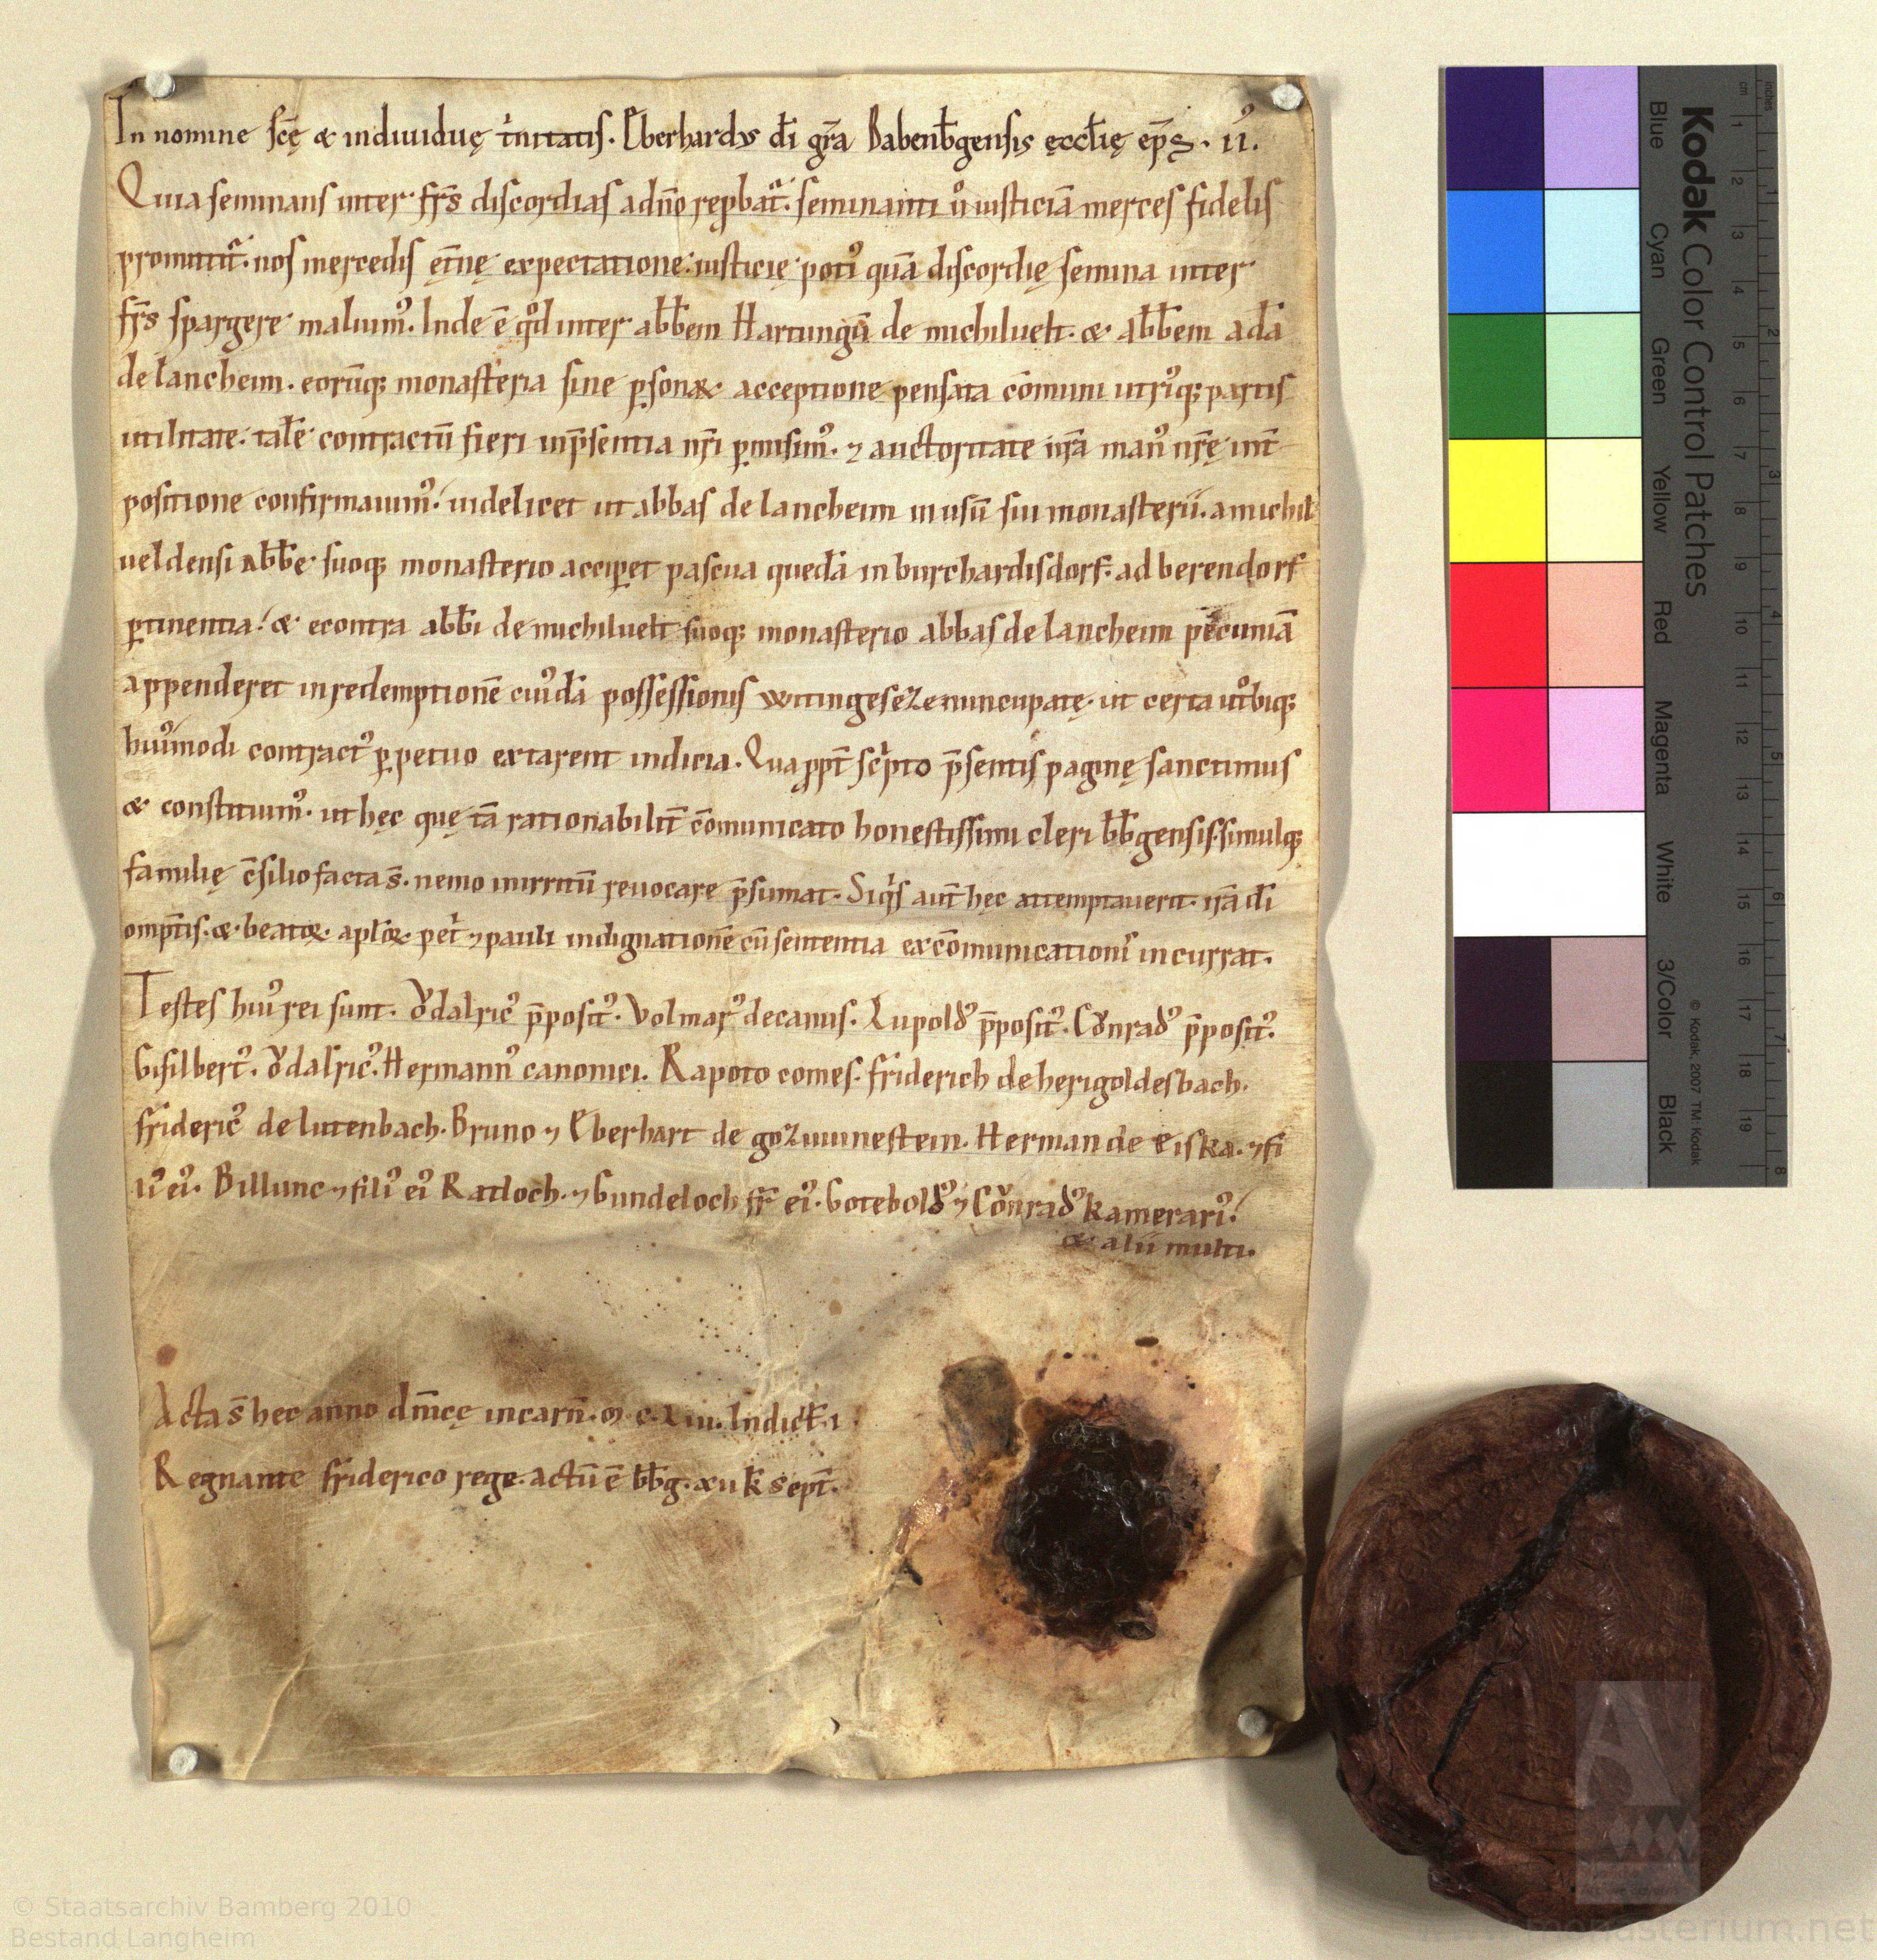 In nomine scē & indiuiduę tͥnitatis. Eberhardus dī grā Babenb̄gensis ęccl̄ię ep̄s. ii͛.
Quia seminans inter fr̄s discordias a dn̄o rep̱bat᷑. seminanti u͛ iusticiā merces fidelis
promittit᷑. nos mercedis et̄nę expectatione iusticię poti᷒ quā discordię semina inter
fr̄s spargere malium᷒. Inde ē qͦd inter abb̄em Hartungū de michiluelt. & abb̄em adā
de lancheim. eorūq; monasteria sine p̱sonaꝝ acceptione pensata cōmuni utri᷒q; partis
utilitate. talē contractū fieri in p̄sentia nr̄i p̱misim᷒. ⁊ auctoritate nr̄a man᷒ nr̄ę int̄
positione confirmauim᷒. uidelicet ut abbas de lancheim in usū sui monasterii. a michil
ueldensi abb̄e suoq; monasterio accip̱et pascua quedā in burchardisdorf. ad berendorf
p̱tinentia. & econtra abb̄i de michiluelt suoq; monasterio abbas de lancheim pecuniā
appenderet in redemptionē cui᷒dā possessionis witingeseze nuncupatę. ut certa ut͛bique
hui᷒modi contract᷒ p̱petuo extarent indicia. Qua ꝓpt̄ scͥpto p̄sentis paginę sanctimus
& constituim᷒. ut hęc quę tā rationabilit̄ cōmunicato honestissimi cleri bb̄gensis. simulq;
familię c̄silio facta s̄. nemo in irritū reuocare p̄sumat. Siqͥs aut̄ hęc attemptauerit. irā dī
omp̄tis. & beatoꝝ apl̄oꝝ petͥ ⁊ pauli indignationē cū sententia excōmunicationis incurrat.
Testes hui᷒ rei sunt. Ǒdalric᷒ p̄posit᷒. Volmar᷒ decanus. Lupold᷒ p̄posit᷒. Cǒnrad᷒ p̄posit᷒.
Gisilbert᷒. Ǒdalric᷒. Hermann᷒ canonici. Rapoto comes. friderich de herigoldesbach.
frideric᷒ de lutenbach. Bruno ⁊ Eberhart de gozwinestein. Herman de eiska. ⁊ fi
li᷒ ei᷒. Billunc ⁊ fili᷒ ei᷒ Ratloch. ⁊ Gundeloch fr̄ ei᷒. Gotebold᷒ ⁊ Cǒnrad᷒ kamerari᷒.
& alii multi.
Acta s̄ hec anno dn̄icę incarn̄. m. c. Liii. Indict̄. i
Regnante friderico rege. actū ē bb̄g. xvi k̄ sept̄.
Kodak Color Control Patches
Blue Cyan Green Yellow Red Magenta White 3/Color Black
© Kodak, 2007 TM: Kodak
cm 1 2 3 4 5 6 7 8 9 10 11 12 13 14 15 16 17 18 19
inches 1 2 3 4 5 6 7 8
© Staatsarchiv Bamberg 2010
Bestand Langheim
www.monasterium.net